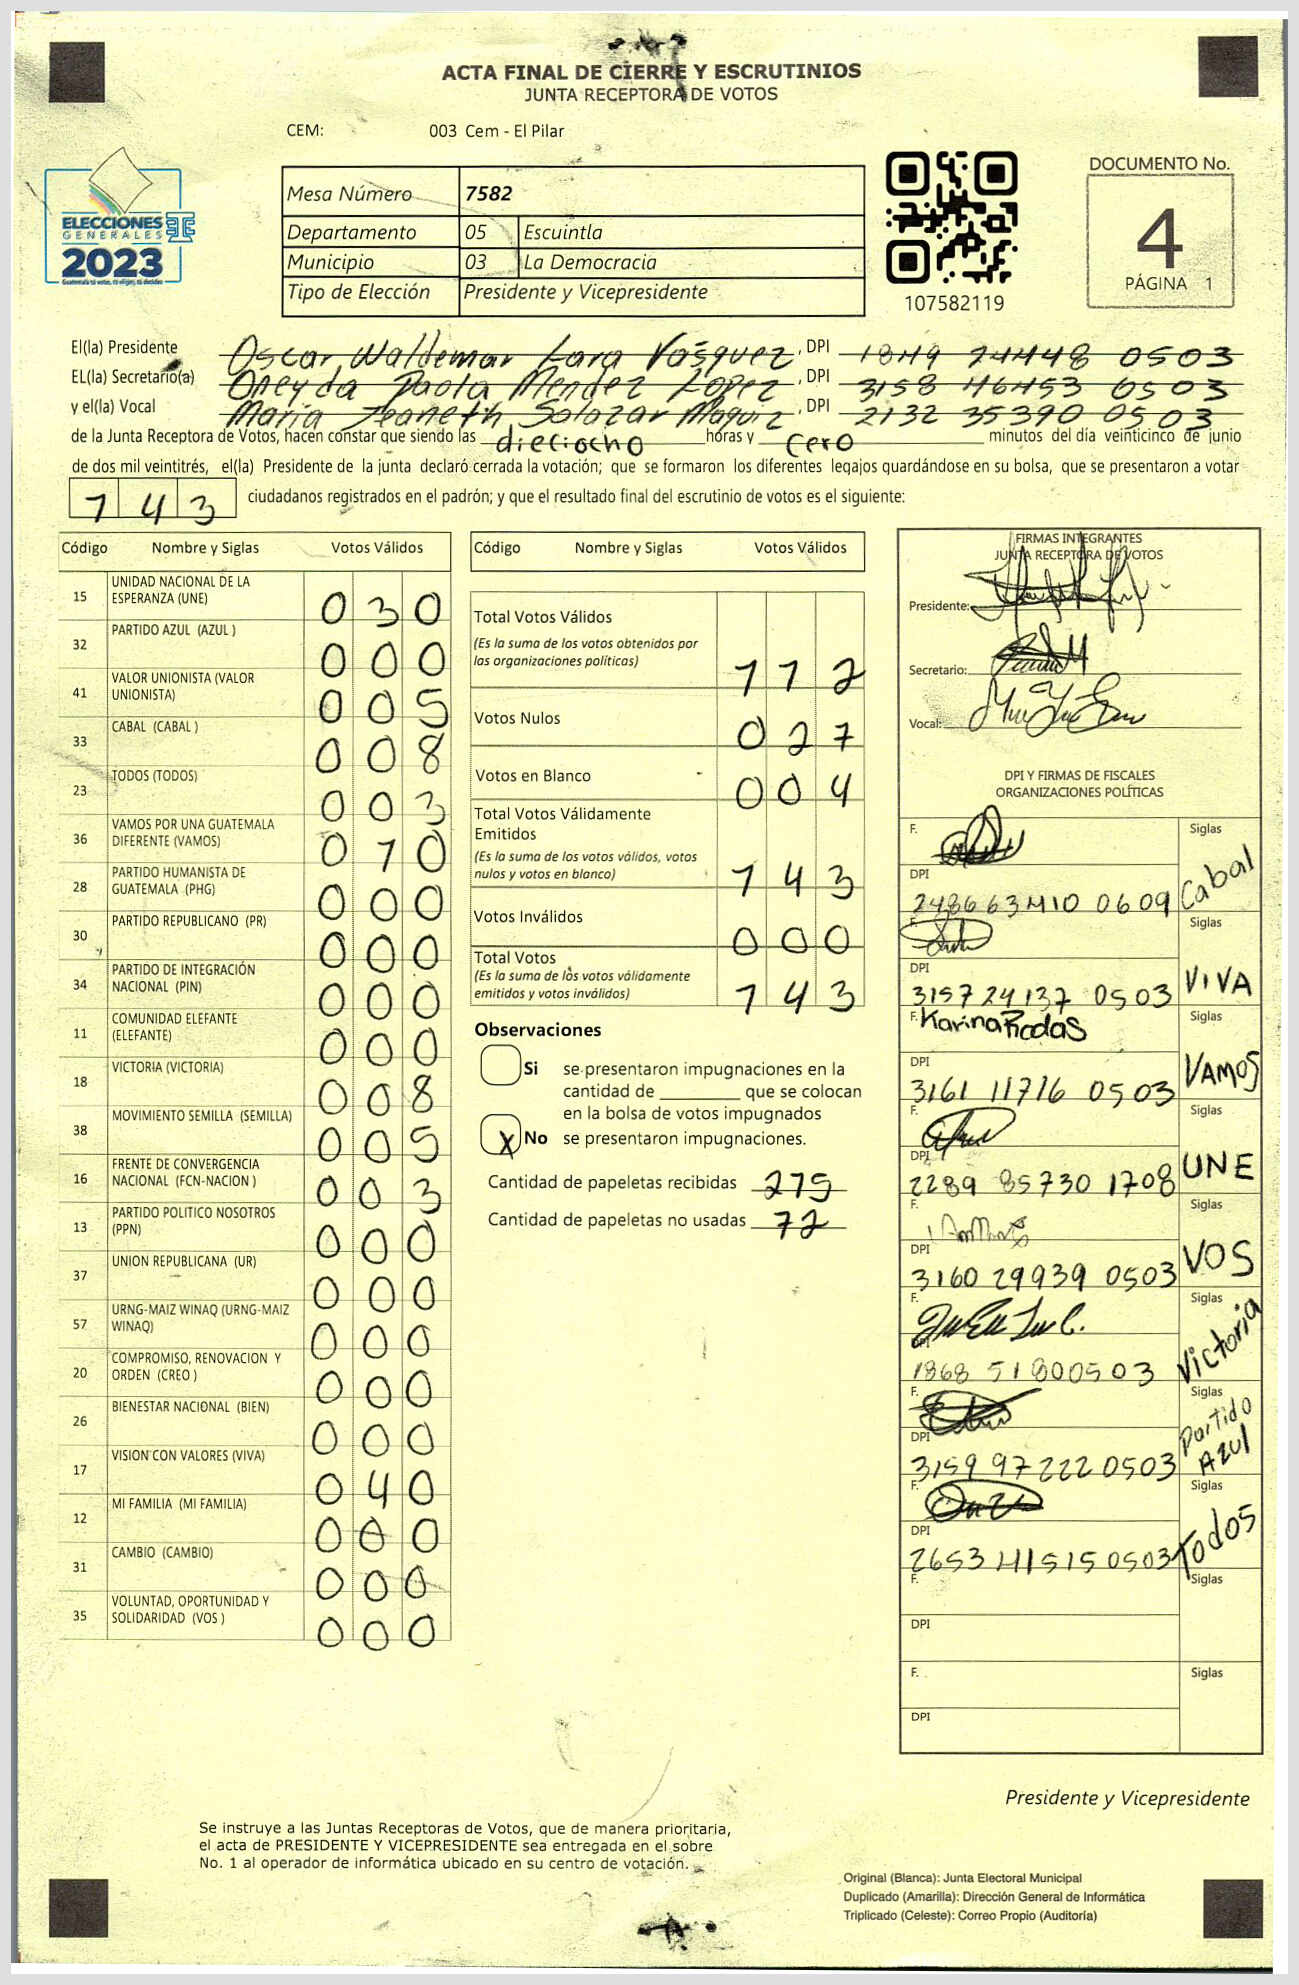 ACTA FINAL DE CIERRE Y ESCRUTINIOS
JUNTA RECEPTORA DE VOTOS
CEM: 003 Cem - El Pilar
ELECCIONES
GENERALES
2023
Mesa Número 7582
Departamento 05 Escuintla
Municipio 03 La Democracia
Tipo de Elección Presidente y Vicepresidente
107582119
DOCUMENTO No.
4
PÁGINA 1
El(la) Presidente Oscar Waldemar Lara Vásquez, DPI 1849 24448 0503
EL(la) Secretario(a) Oneyda Paola Mendez López, DPI 3158 46453 0503
y el(la) Vocal Maria Jeaneth Salazar Maquiz, DPI 2132 35390 0503
de la Junta Receptora de Votos, hacen constar que siendo las dieciocho horas y cero minutos del día veinticinco de junio
de dos mil veintitrés, el(la) Presidente de la junta declaró cerrada la votación; que se formaron los diferentes legajos guardándose en su bolsa, que se presentaron a votar
143 ciudadanos registrados en el padrón; y que el resultado final del escrutinio de votos es el siguiente:
Código Nombre y Siglas Votos Válidos
15 UNIDAD NACIONAL DE LA ESPERANZA (UNE) 030
32 PARTIDO AZUL (AZUL ) 000
41 VALOR UNIONISTA (VALOR UNIONISTA) 005
33 CABAL (CABAL ) 008
23 TODOS (TODOS) 003
36 VAMOS POR UNA GUATEMALA DIFERENTE (VAMOS) 010
28 PARTIDO HUMANISTA DE GUATEMALA (PHG) 000
30 PARTIDO REPUBLICANO (PR) 000
34 PARTIDO DE INTEGRACIÓN NACIONAL (PIN) 000
11 COMUNIDAD ELEFANTE (ELEFANTE) 000
18 VICTORIA (VICTORIA) 008
38 MOVIMIENTO SEMILLA (SEMILLA) 005
16 FRENTE DE CONVERGENCIA NACIONAL (FCN-NACION ) 003
13 PARTIDO POLITICO NOSOTROS (PPN) 000
37 UNION REPUBLICANA (UR) 000
57 URNG-MAIZ WINAQ (URNG-MAIZ WINAQ) 000
20 COMPROMISO, RENOVACION Y ORDEN (CREO ) 000
26 BIENESTAR NACIONAL (BIEN) 000
17 VISION CON VALORES (VIVA) 040
12 MI FAMILIA (MI FAMILIA) 000
31 CAMBIO (CAMBIO) 000
35 VOLUNTAD, OPORTUNIDAD Y SOLIDARIDAD (VOS ) 000
Código Nombre y Siglas Votos Válidos
Total Votos Válidos
(Es la suma de los votos obtenidos por
las organizaciones políticas) 112
Votos Nulos 027
Votos en Blanco 004
Total Votos Válidamente
Emitidos
(Es la suma de los votos válidos, votos
nulos y votos en blanco) 143
Votos Inválidos 000
Total Votos
(Es la suma de los votos válidamente
emitidos y votos inválidos) 143
Observaciones
Si se presentaron impugnaciones en la
cantidad de ________ que se colocan
en la bolsa de votos impugnados
X No se presentaron impugnaciones.
Cantidad de papeletas recibidas 215
Cantidad de papeletas no usadas 72
FIRMAS INTEGRANTES
JUNTA RECEPTORA DE VOTOS
Presidente:
Secretario:
Vocal:
DPI Y FIRMAS DE FISCALES
ORGANIZACIONES POLÍTICAS
F. Siglas
DPI 2486 63410 0609 Cabal
F. Siglas
DPI 3157 24137 0503 VIVA
F. Karina Rodas Siglas
DPI 3161 11716 0503 VAMOS
F. Siglas
DPI 2289 85730 1708 UNE
F. Siglas
DPI 3160 29939 0503 VOS
F. Siglas
DPI 1868 51800503 Victoria
F. Siglas
DPI 3159 97222 0503 Partido AZUL
F. Siglas
DPI 2653 41515 0503 Todos
F. Siglas
DPI
F. Siglas
DPI
Presidente y Vicepresidente
Se instruye a las Juntas Receptoras de Votos, que de manera prioritaria,
el acta de PRESIDENTE Y VICEPRESIDENTE sea entregada en el sobre
No. 1 al operador de informática ubicado en su centro de votación.
Original (Blanca): Junta Electoral Municipal
Duplicado (Amarilla): Dirección General de Informática
Triplicado (Celeste): Correo Propio (Auditoría)